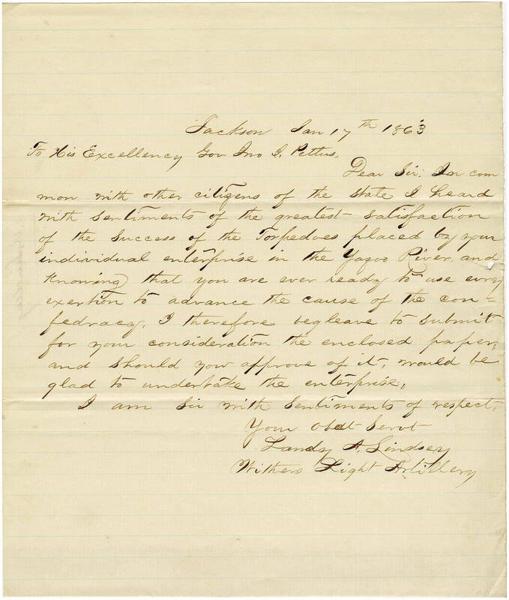 Jackson Jan 17th 1863
To His Excellency Gov Jno J. Pettus,
Dear Sir: In com
mon with other citizens of the State I heard
with sentiments of the greatest satisfaction
of the success of the Torpedoes placed by your
individual enterprise in the Yazoo River, and
knowing that you are ever ready to use every
exertion to advance the cause of the con-
fedracy. I therefore beg leave to submit
for your consideration the enclosed paper,
and should you approve of it, would be
glad to undertake the enterprise,
I am Sir with Sentiments of respect,
Your Obdt Servt
Landy A. Lindsey
Withers Light Artillery